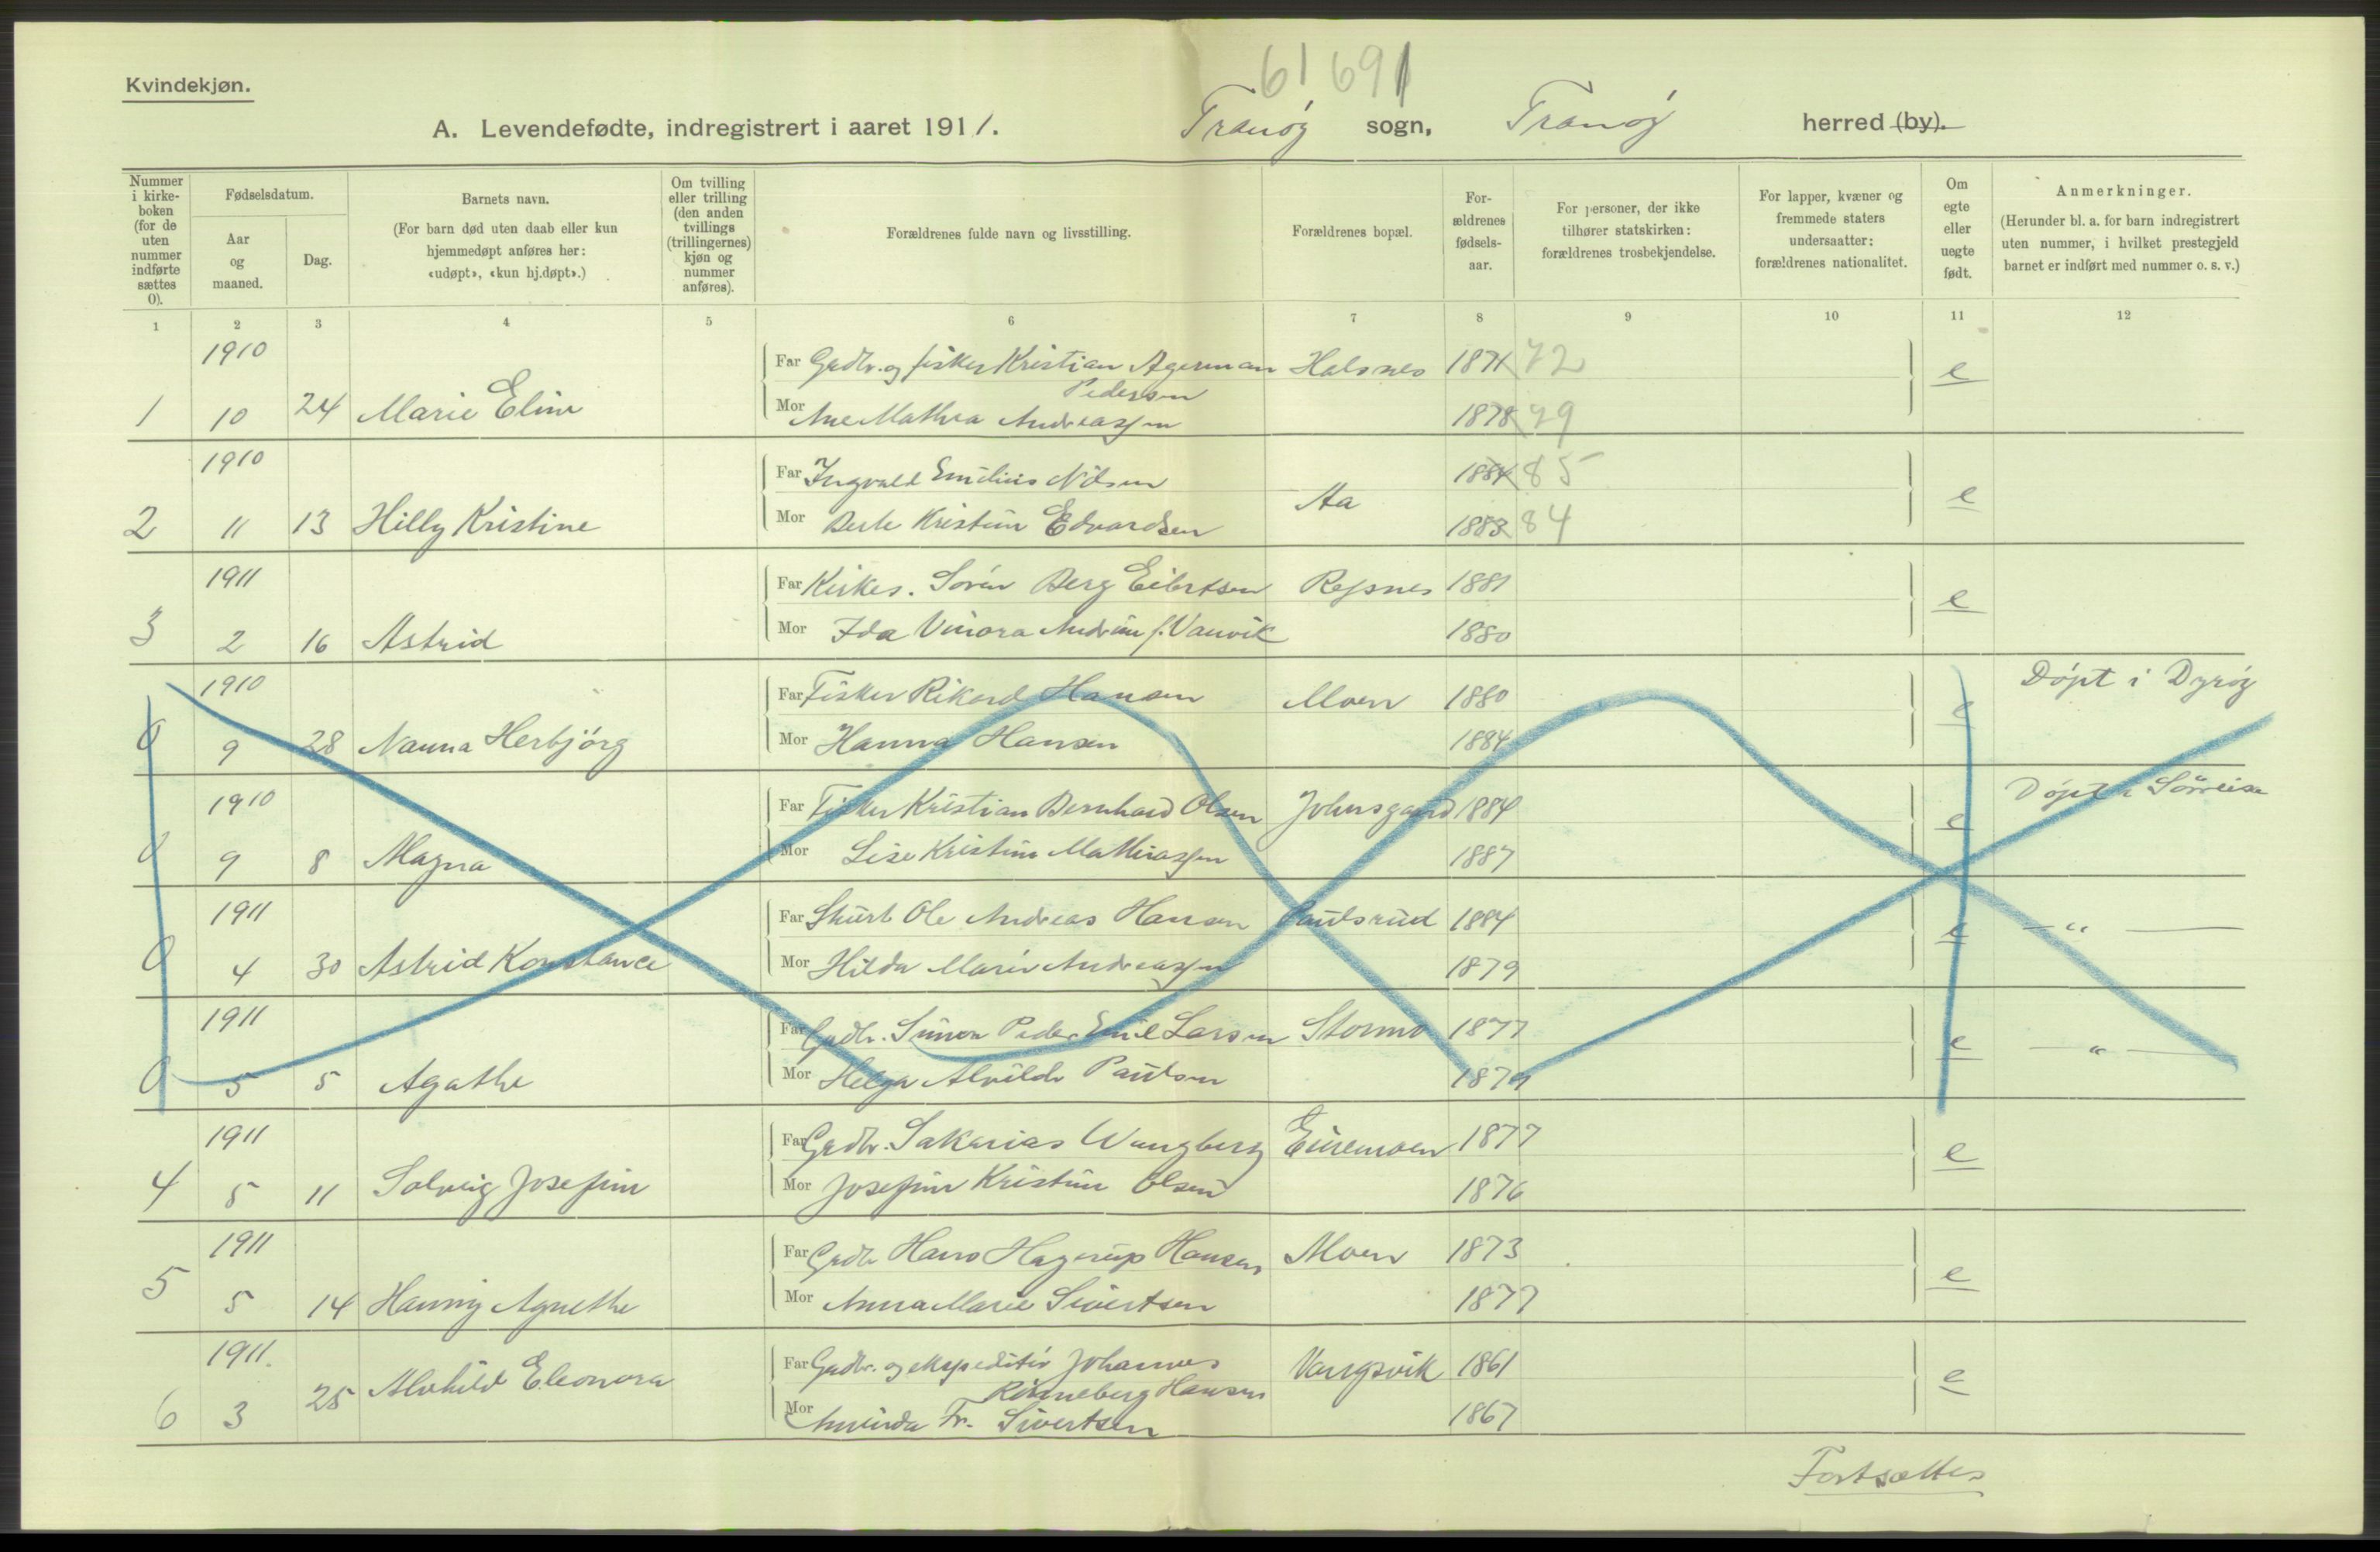 61 691
Kvindekjøn.
A. Levendefødte, indregistrert i aaret 1911. Tranøy sogn, Tranøy herred (by).
Nummer i kirke-boken (for de uten nummer indførte sættes 0).
Fødselsdatum.
Aar og maaned.
Dag.
Barnets navn.
(For barn død uten daab eller kun hjemmedøpt anføres her: «udøpt», «kun hj.døpt».)
Om tvilling eller trilling (den anden tvillings (trillingernes) kjøn og nummer anføres).
Forældrenes fulde navn og livsstilling.
Forældrenes bopæl.
For-ældrenes fødsels-aar.
For personer, der ikke tilhører statskirken: forældrenes trosbekjendelse.
For lapper, kvæner og fremmede staters undersaatter: forældrenes nationalitet.
Om egte eller uegte født.
Anmerkninger.
(Herunder bl. a. for barn indregistrert uten nummer, i hvilket prestegjeld barnet er indført med nummer o. s. v.)
1 2 3 4 5 6 7 8 9 10 11 12
1910 Far Grdbr. og fisker Kristian Agerman Halsnes 1871 72 e
Pedersen
1 10 24 Marie Eline Mor Ane Mathea Andreassen 1878 79
1910 Far Ingvald Emilius Nilsen Aa 1884 85 e
2 11 13 Hilly Kristine Mor Berte Kristine Edvardsen 1883 84
1911 Far Kirkes. Sørén Berg Eilertsen Refsnes 1881 e
3 2 16 Astrid Mor Ida Vinora Andrine f. Vanvik 1880
1910 Far Fisker Rikard Hansen Moen 1880 e Døpt i Dyrøy
0 9 28 Nanna Herbjórg Mor Hanna Hansen 1884
1910 Far Fisker Kristian Bernhard Olsen Johnsgaard 1884 e Døpt i Sørreisa
0 9 8 Magna Mor Lise Kristine Mathiassen 1887
1911 Far Skurb Ole Andreas Hansen Paulsrud 1884 e — " —
0 4 30 Astrid Konstance Mor Hilda Marie Andreassen 1879
1911 Far Grdbr. Simon Peder Emil Larsen Stormo 1877 e — " —
0 5 5 Agathe Mor Helga Alvilde Paulsen 1879
1911 Far Grdbr. Sakarias Wangberg Einemoen 1877 e
4 5 11 Solveig Josefine Mor Josefine Kristine Olsen 1876
1911 Far Grdbr Hans Hagerup Hansen Moen 1873 e
5 5 14 Hanny Agnethe Mor Anna Marie Sivertsen 1877
1911. Far Grdbr. og ekspeditör Johannes Vangsvik 1861 e
Rönneberg Hansen
6 3 25 Alvhild Eleonora Mor Aminda Fr. Sivertsen 1867
Fortsættes